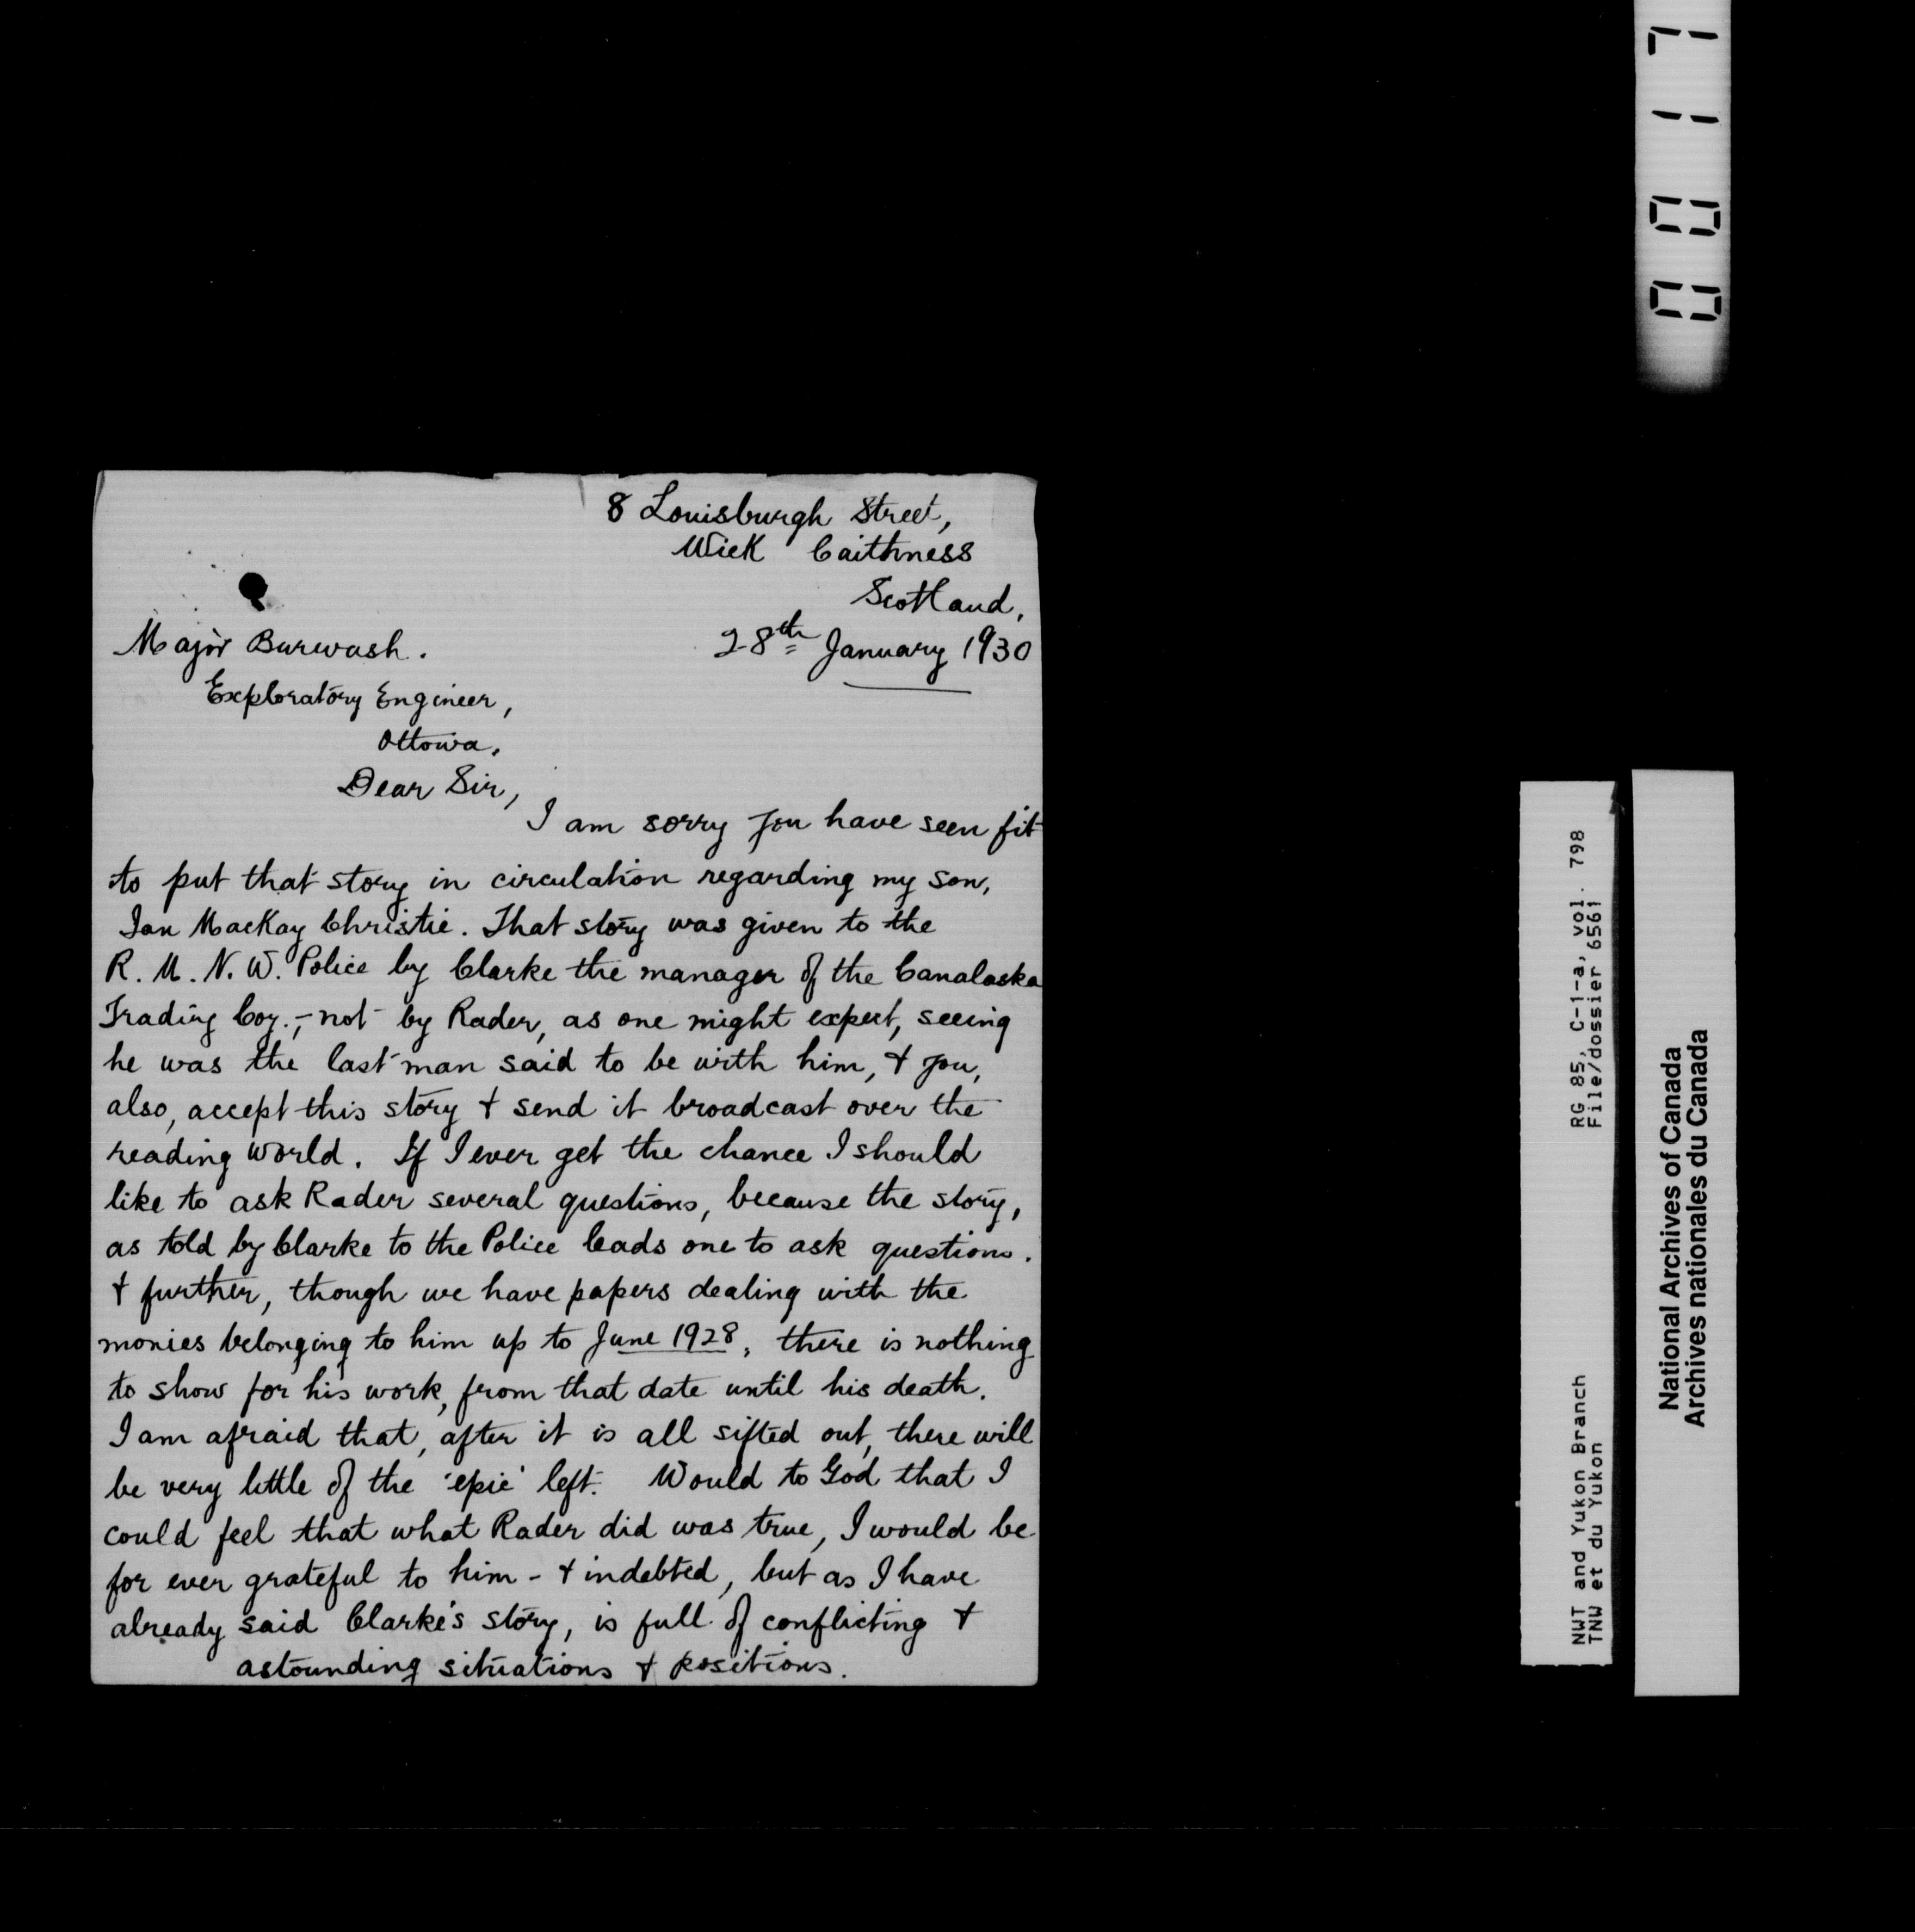 8 Louisburgh Street,
Wick Caithness
Scotland,
28th January 1930
Major Burwash.
Exploratory Engineer,
Ottowa.
Dear Sir,
I am sorry you have seen fit
to put that story in circulation regarding my son,
Ian MacKay Christie. That story was given to the
R. M. N. W. Police by Clarke the manager of the Canalaska
Trading Coy., - not by Rader, as one might expect, seeing
he was the last man said to be with him, & you,
also, accept this story & send it broadcast over the
reading world. If I ever get the chance I should
like to ask Rader several questions, because the story,
as told by Clarke to the Police leads one to ask questions.
& further, though we have papers dealing with the
monies belonging to him up to June 1928, there is nothing
to show for his work, from that date until his death.
I am afraid that, after it is all sifted out, there will
be very little of the 'epic' left. Would to God that I
could feel that what Rader did was true, I would be
for ever grateful to him - & indebted, but as I have
already said Clarke's story, is full of conflicting &
astounding situations & positions.
0017
RG 85, C-1-a, vol. 798
File/dossier 6561
NWT and Yukon Branch
TNW et du Yukon
National Archives of Canada
Archives nationales du Canada